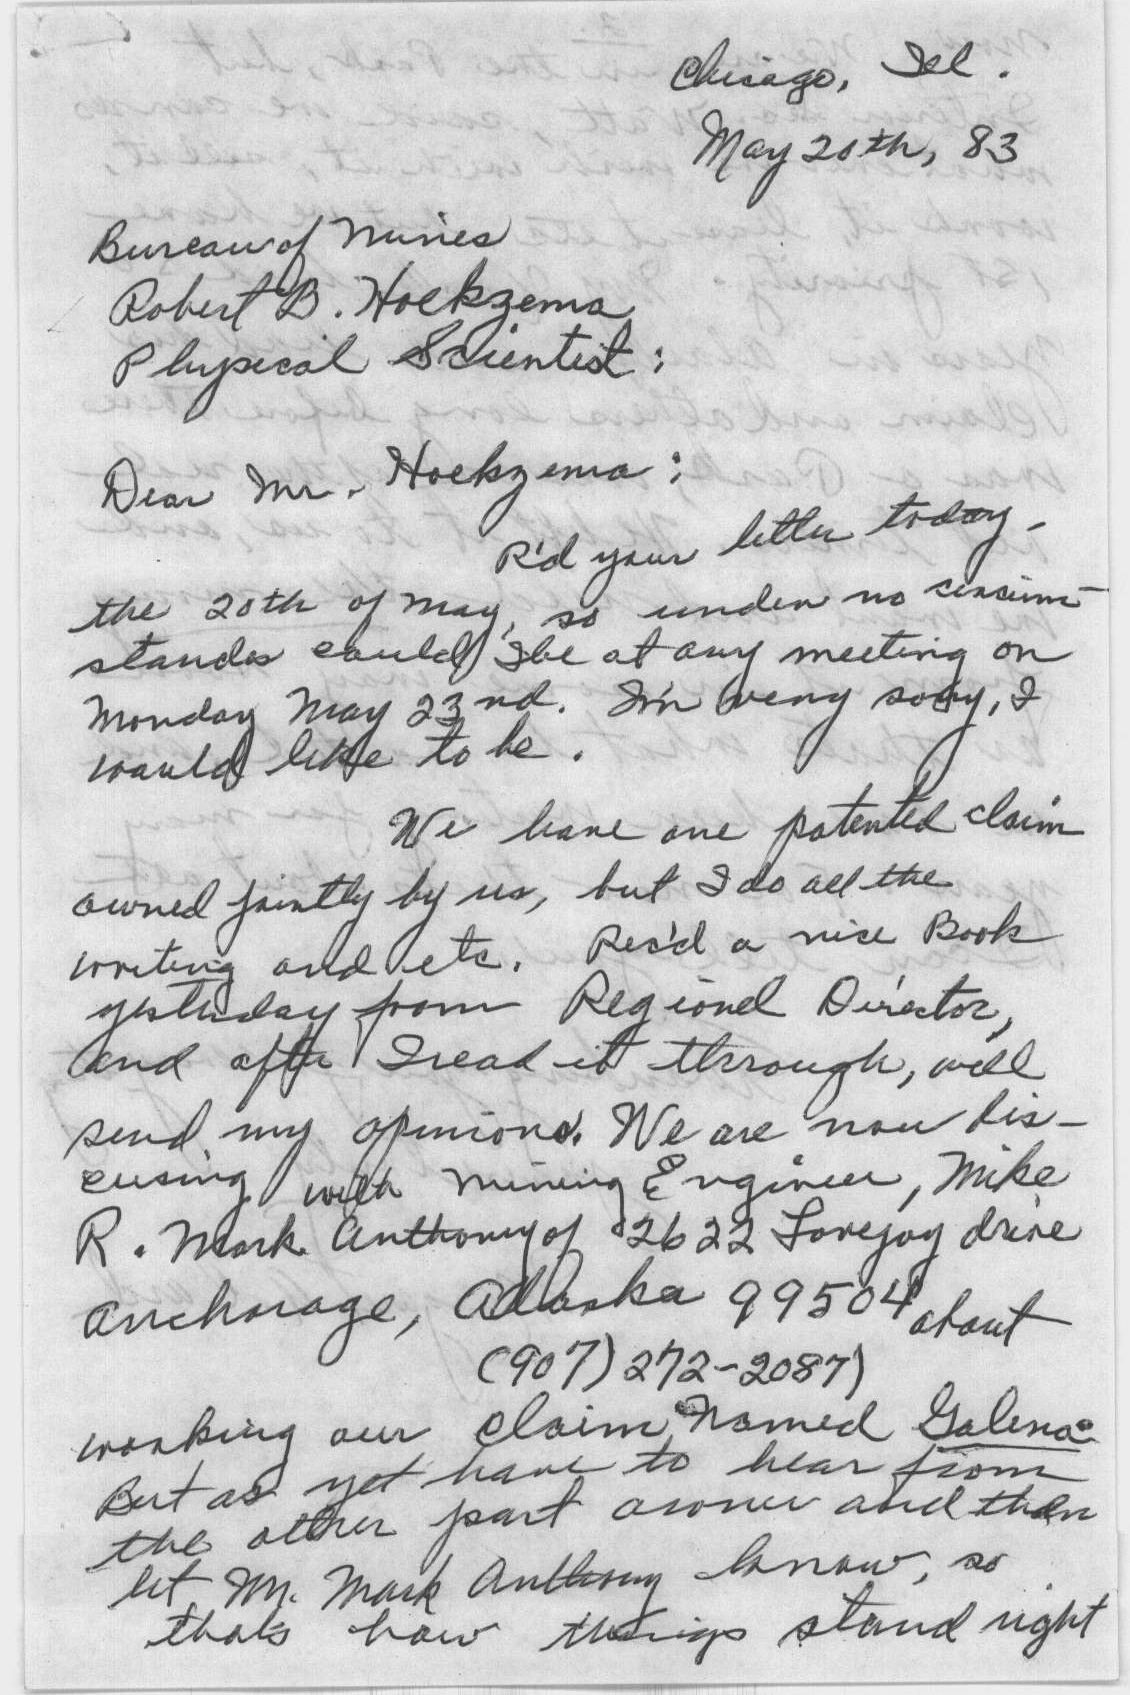 Chicago, Ill.
May 20th, 83
Bureau of Mines
Robert B. Hoekzema
Physical Scientist:
Dear Mr. Hoekzema:
R'd your letter today -
the 20th of May, so under no circum-
standes could I be at any meeting on
Monday May 23nd. I'm veny sory, I
would like to be.
We have one patented claim
owned jointly by us, but I do all the
writing and etc. Rec'd a nice Book
yesterday from Regional Director,
and after I read it through, will
send my opinions. We are now dis-
cusing with Mining Engineer, Mike
R. Mark Anthony of 2622 Lovejoy drive
Anchorage, Alaska 99504 about
(907) 272-2087)
working our claim named Galena.
But as yet have to hear from
the other part owner and then
let Mr. Mark Anthony know, so
thats how things stand right